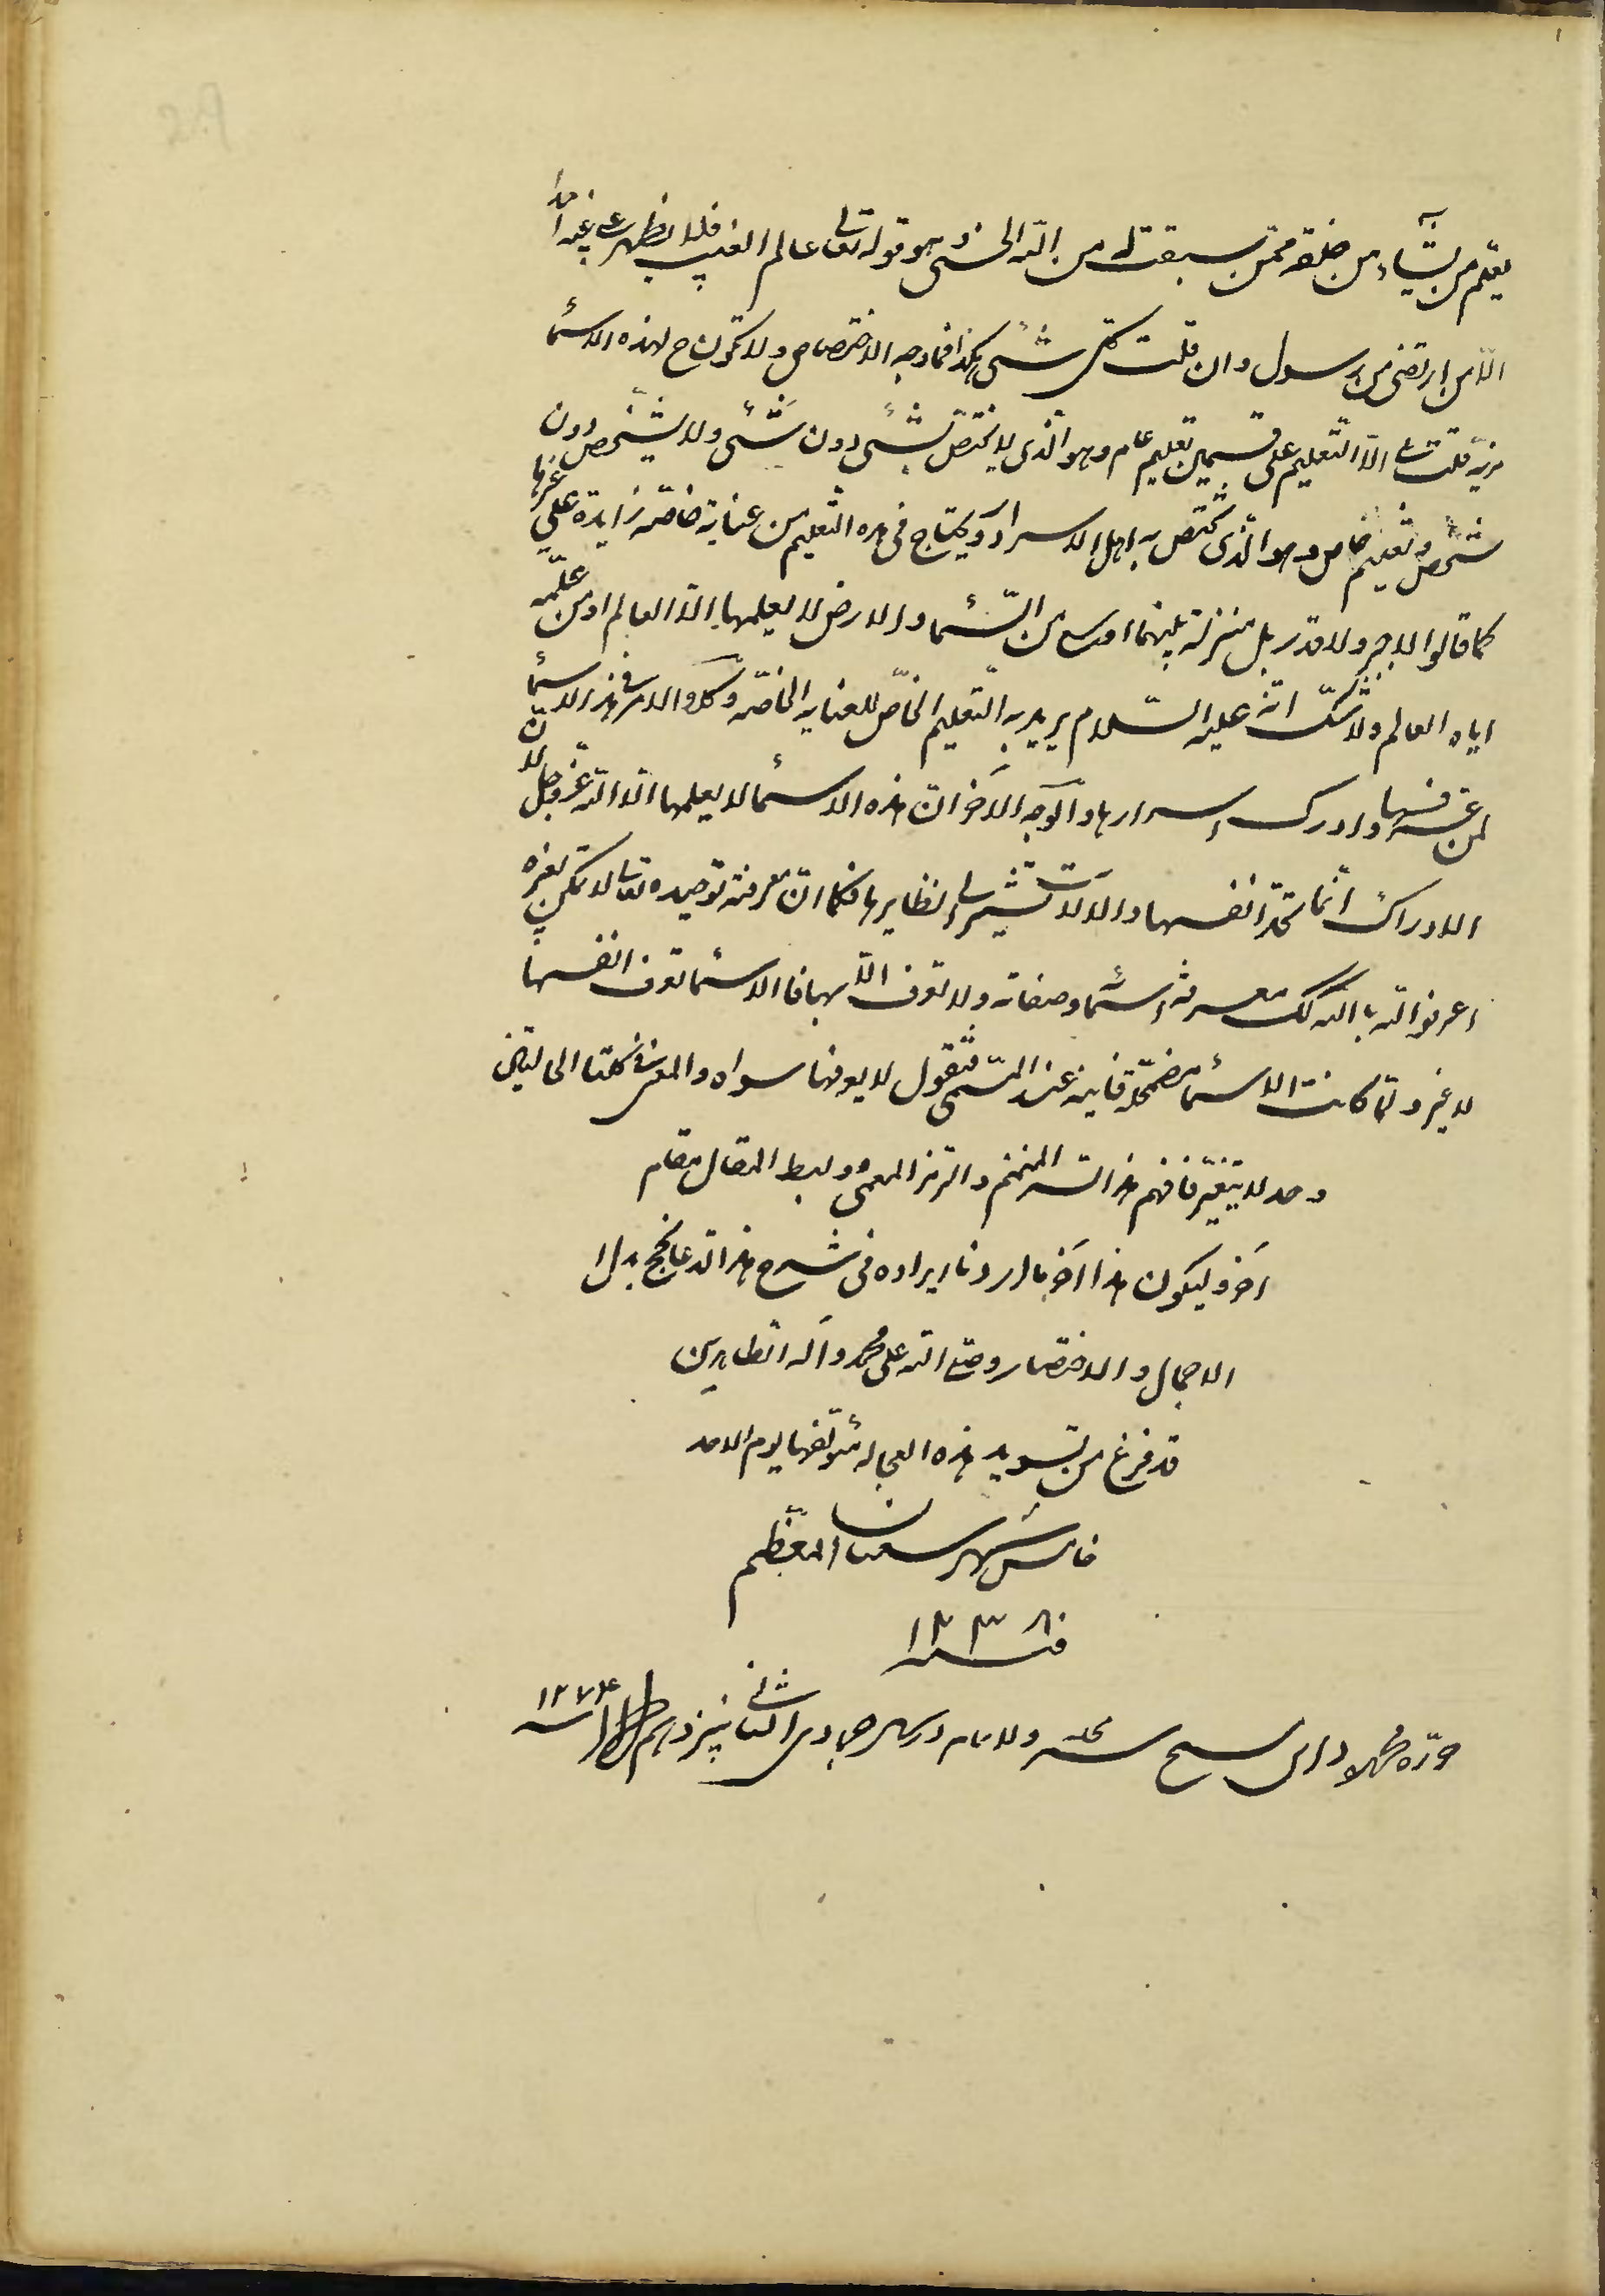 يعلم من يشاء من خلقه ممن سبقت له من الله الحسنى و هو قوله تعالى عالم الغيب فلا يظهر على غيبه احدا
الا من ارتضى من رسول و ان قلت كل شئى هكذا فما وجه الاختصاص و لا تكون ح لهذه الاسماء
مزية قلت ان التعليم على قسمين تعليم عام و هو الذى لا يختص بشئى دون شئى و لا بشخص دون
شخص و تعليم خاص و هو الذى يختص به اهل الاسرار و يحتاج فى هذه التعليم من عناية خاصة زايدة على غيرها
كما قالوا لا جبر و لا قدر بل منزلة بينهما اوسع من السماء و الارض لا يعلمها الا العالم او من علمه
اياه العالم و لا شك انه عليه السلام يريد به التعليم الخاص للعناية الخاصة و كل الامر فى هذه الاسماء
لمن عرفها و ادرك اسرارها و الوجه الاخر ان هذه الاسماء لا يعلمها الا الله عز و جل لان
الادراك انما تحد انفسها و الالات تشير الى نظايرها فكما ان معرفة توحيده تعالى لا تكن لغيره
اعرفوا الله بالله كك معرفة اسماء و صفاته و لا تعرف الا بها فالاسماء تعرف انفسها
لا غير و لما كانت الاسماء مضمحلة فانية عند المسمى فتقول لا يعرفها سواه و المعنى فى كلتا الحالتين
واحد لا يتغير فافهم هذا السر المنمنم و الرمز المعمى و لبسط المقال مقام
آخر و ليكون هذا آخر ما اردنا ايراده فى شرح هذا الدعاء
الاجمال و الاختصار و صلى الله على محمد و آله الطاهرين
قد فرغ من تسويد هذه العجالة مؤلفها يوم الاحد
خامس شهر شعبان المعظم
١٢٣٨
فى سنه
حرره فى شهر جمادى الثانى ١٢٧٤